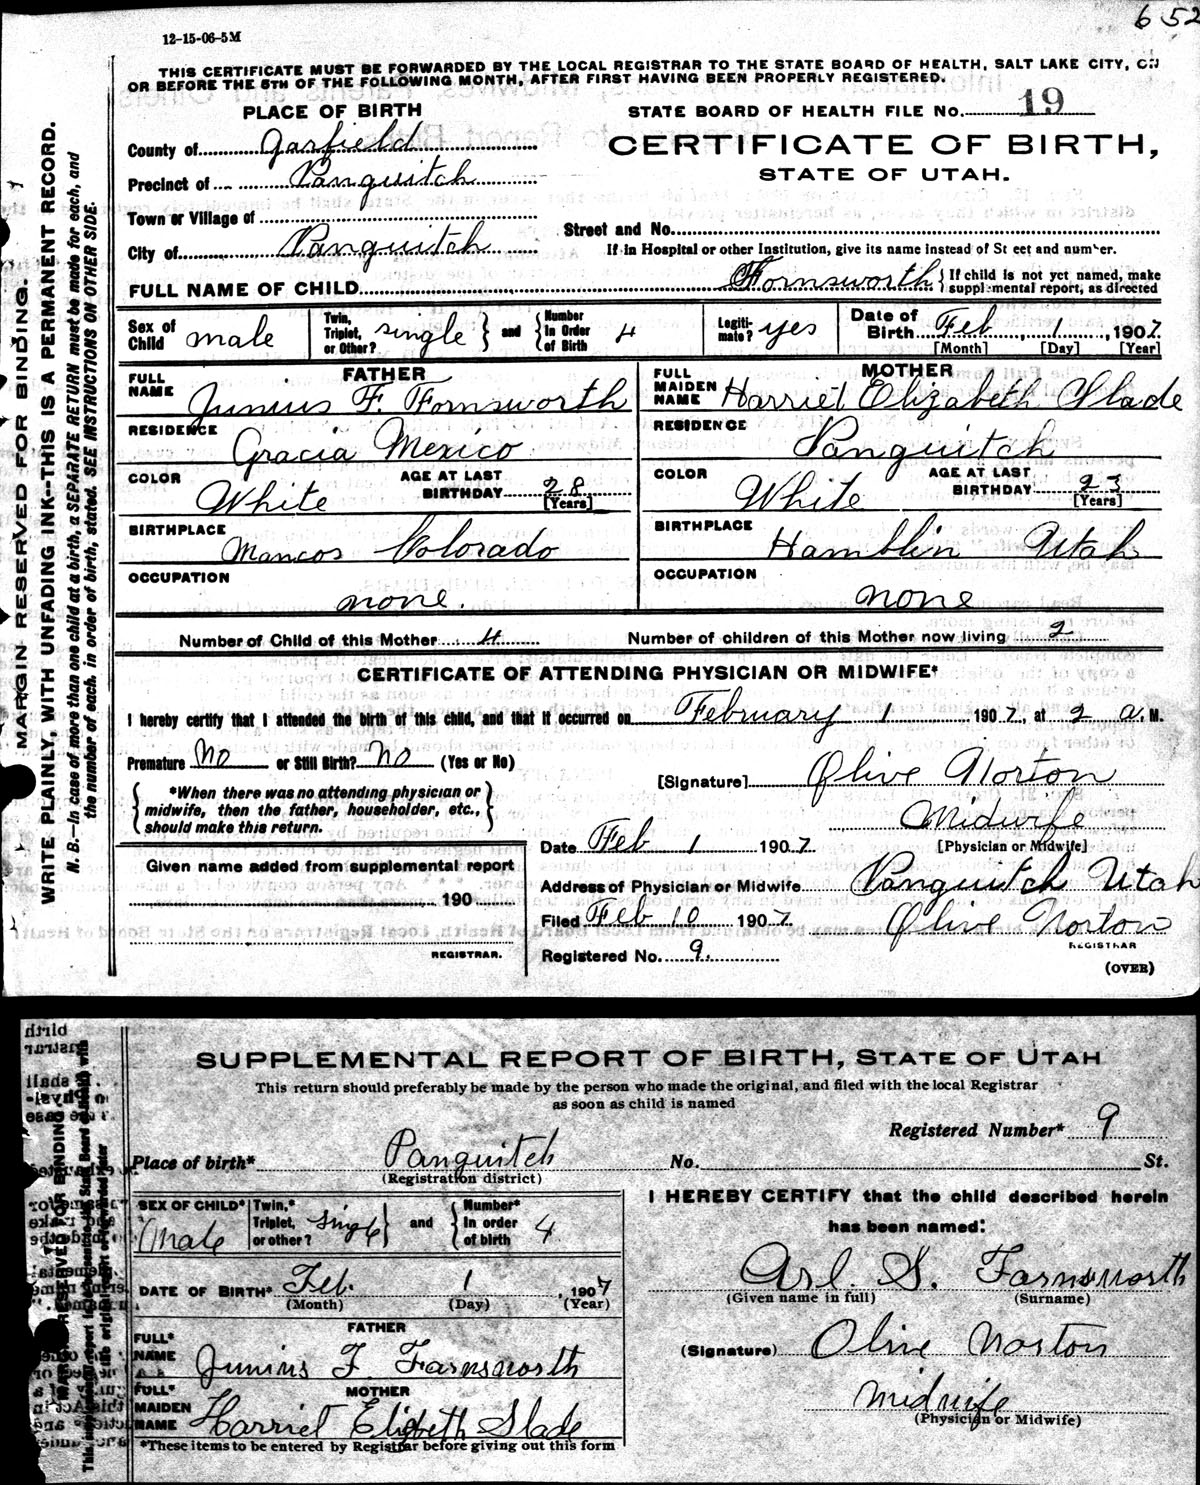 652
12-15-06-5M
THIS CERTIFICATE MUST BE FORWARDED BY THE LOCAL REGISTRAR TO THE STATE BOARD OF HEALTH, SALT LAKE CITY, ON
OR BEFORE THE 5TH OF THE FOLLOWING MONTH, AFTER FIRST HAVING BEEN PROPERLY REGISTERED.
PLACE OF BIRTH
STATE BOARD OF HEALTH FILE No. 19
County of Garfield
CERTIFICATE OF BIRTH,
Precinct of Panguitch
STATE OF UTAH.
Town or Village of
Street and No.
City of Panguitch
If in Hospital or other Institution, give its name instead of St eet and number.
FULL NAME OF CHILD Fornsworth { If child is not yet named, make
supplemental report, as directed
Sex of Child male
Twin, Triplet, or Other? single } and { Number In Order of Birth 4
Legiti-mate? yes
Date of Birth Feb 1, 1907.
[Month] [Day] [Year]
FATHER
FULL NAME Junius F. Fornsworth
MOTHER
FULL MAIDEN NAME Harriet Elizabeth Slade
RESIDENCE Gracia Mexico
RESIDENCE Panguitch
COLOR White AGE AT LAST BIRTHDAY 28 [Years]
COLOR White AGE AT LAST BIRTHDAY 23 [Years]
BIRTHPLACE Mancos Colorado
BIRTHPLACE Hamblin Utah
OCCUPATION none.
OCCUPATION none
Number of Child of this Mother 4 Number of children of this Mother now living 2
CERTIFICATE OF ATTENDING PHYSICIAN OR MIDWIFE*
I hereby certify that I attended the birth of this child, and that it occurred on February 1 1907, at 2 a. M.
Premature No or Still Birth? No (Yes or No)
[Signature] Olive Norton
{ *When there was no attending physician or
midwife, then the father, householder, etc.,
should make this return. }
Midwife
[Physician or Midwife]
Date Feb 1 1907.
Given name added from supplemental report
190
REGISTRAR.
Address of Physician or Midwife Panguitch Utah
Filed Feb 10 1907. Olive Norton
REGISTRAR
Registered No. 9.
(OVER)
MARGIN RESERVED FOR BINDING.
WRITE PLAINLY, WITH UNFADING INK--THIS IS A PERMANENT RECORD.
N. B.—In case of more than one child at a birth, a SEPARATE RETURN must be made for each, and
the number of each, in order of birth, stated. SEE INSTRUCTIONS ON OTHER SIDE.
SUPPLEMENTAL REPORT OF BIRTH, STATE OF UTAH
This return should preferably be made by the person who made the original, and filed with the local Registrar
as soon as child is named
Registered Number* 9
Place of birth* Panguitch No. St.
(Registration district)
SEX OF CHILD* Male
Twin,* Triplet, or other? single } and { Number* In order of birth 4
I HEREBY CERTIFY that the child described herein
has been named:
DATE OF BIRTH* Feb. 1, 1907
(Month) (Day) (Year)
Arl. S. Farnsworth
(Given name in full) (Surname)
FATHER
FULL* NAME Junius F. Farnsworth
(Signature) Olive Norton
MOTHER
FULL* MAIDEN NAME Harriet Elizbeth Slade
midwife
(Physician or Midwife)
*These items to be entered by Registrar before giving out this form